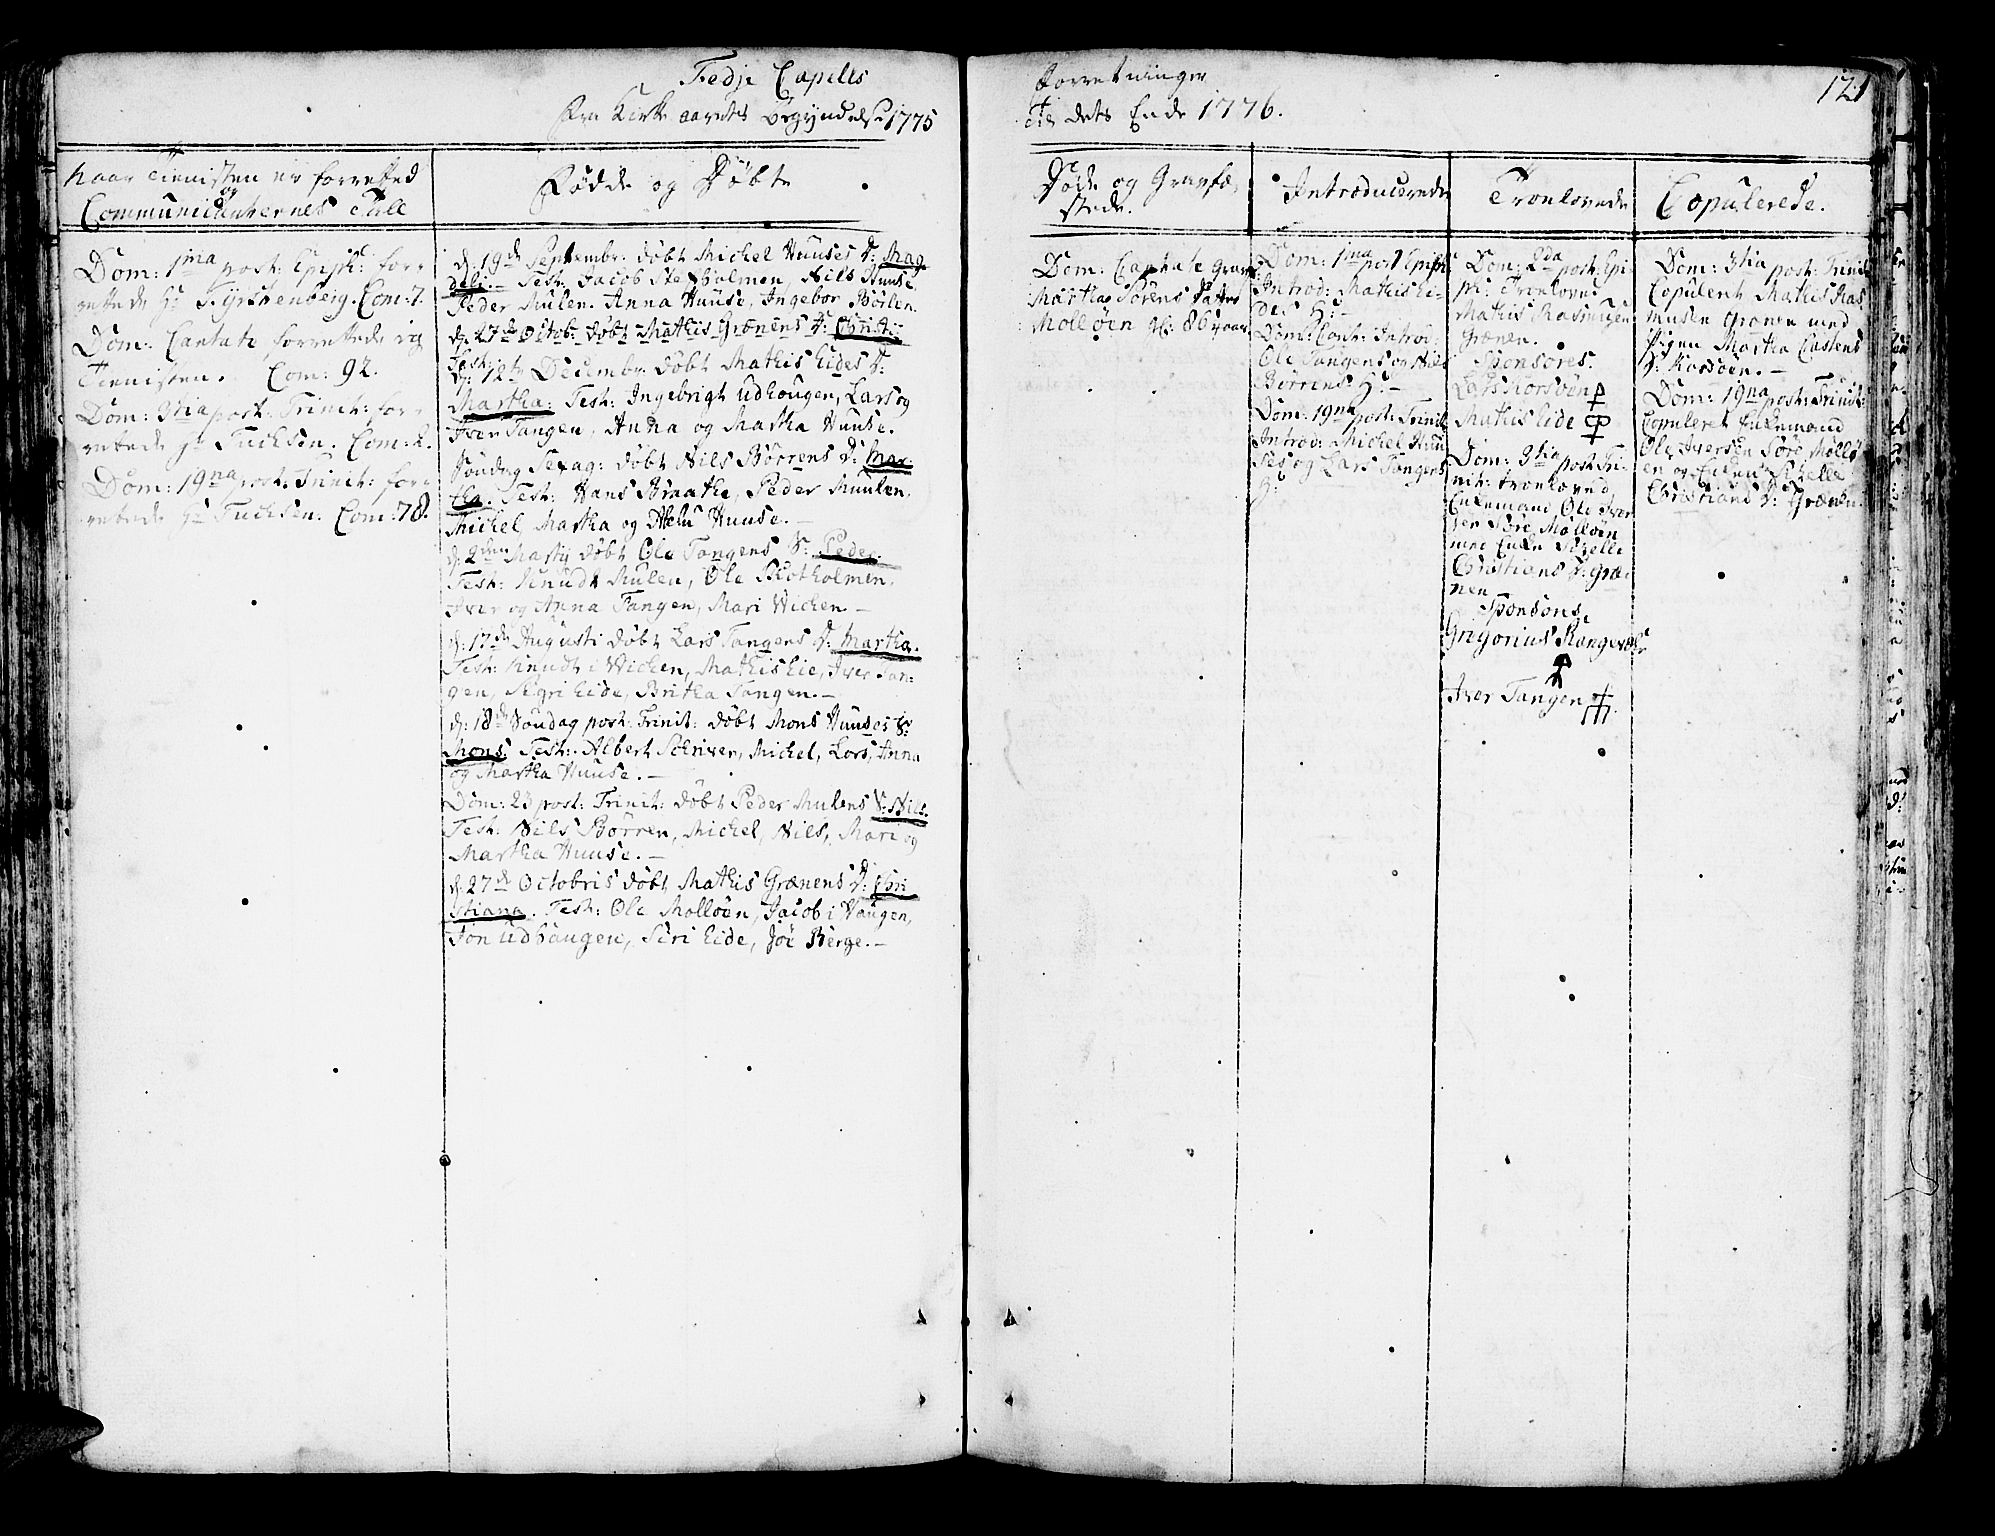 Fedje Capells
Forretninger
121
fra Kirke aarets Begyndelse 1775
til dets Ende 1776.
Naar Tienisten er forretted
og
Communicanternes Tall
Fødde og Døbte
Døde og Gravfæ,
stede.
Introducerede
Troelovede
Copulerede.
Dom: 1ma post: Epiph: for,,
rettede Hr Fyrstenberg. Com: 7.
Dom: Cantate forrettede ieg
Tienisten. Com: 92.
Dom: 3tia post: Trinit: for,,
rettede Hr Fuchsen. Com: 2.
Dom: 19na post: Trinit: for,,
rettede Hr Fuchsen. Com: 78.
d: 19de Septembr: døbt Michel Huuses D: Mag
deli. Test: Jacob Stegholmen, Nils Huuse
Peder Mulen. Anna Huuse, Ingebor Børlen.
d: 27de Octob: døbt Mathis Grønens D: Christi:
Test:
d: 12te Decembr: døbt Mathis Eides D:
Martha: Test: Ingebrigt Udhougen, Lars og
Iver Tangen, Anna og Martha Huuse.
Søndag Sexag: døbt Nils Børrens D: Mar
tha. Test: Hans Braathe, Peder Muulen,
Michel Martha og Huuse. —
d: 2den Martij døbt Ole Tangens S: Peder.
Test: Knudt Mulen, Ole Skotholmen,
Iver og Anna Tangen, Mari Wichen —
d: 17de Augusti døbt Lars Tangens D: Martha.
Test: Knudt i Wichen, Mathis Eie, Iver Tan:
gen, Sigri Eide, Britha Tangen. —
d: 18de Søndag post: Trinit: døbt Mons Huuses S:
Mons. Test: Albert Schriver, Michel, Lars, Anna
og Martha Huuse. —
Dom: 23 post: Trinit: døbt Peder Mulens S: Nils.
Test: Nils Børren, Michel, Nils, Mari og
Martha Huuse. —
d: 27de Octobris døbt Mathis Grænens D: Chri:
stiana. Test: Ole Molløen, Jacob i Haugen,
Jon Udhaugen, Siri Eide, Joe Berge. —
Dom: Cantate Grav:
Martha Sørens Datter
Molløen Æt: 86 aar
Dom: 1ma post Epiph:
Introd: Mathis Ei-
des H:
Dom: Cant: Introd:
Ole Tangens og Nils
Børrens H: —
Dom: 19na post: Trinit
Introd: Michel Huu
ses og Lars Tangens
H:
Dom: 2da post: Epi-
ph: Troelovet
Mathis Rasmusen
Grænen.
Sponsores.
Lars Korsøen
Mathis Eide
Dom: 3tia post: Tri-
nit: troeloved
Enkemand Ole Iver
sen Søre Molløen
med Enke Sizelle
Christians D: Græ-
nen
Sponsores.
Grigorius Rongevær
Iver Tangen
Dom: 3tia post: Trinit
Copuleret Mathis Ras
musen Grønen med
Pigen Martha Castens
D: Korsøen. —
Dom: 19na post: Trinit:
Copuleret Enkemand
Ole Iversen Søre Mollø-
en og Enken Sizelle
Christians D: Grænen.